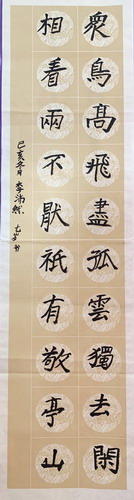 衆鳥高飛盡孤雲獨去閑
相看兩不厭祇有敬亭山
己亥冬月李沛然